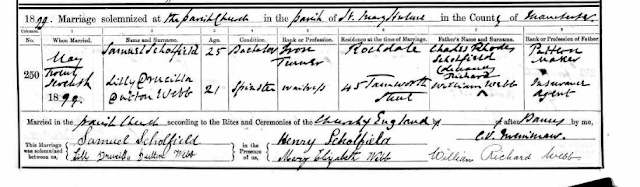 1899. Marriage solemnized at the parish Church in the parish of St. Mary Hulme in the County of Manchester
Columns:— 1 2 3 4 5 6 7 8
No. When Married. Name and Surname. Age. Condition. Rank or Profession. Residence at the time of Marriage. Father's Name and Surname. Rank or Profession of Father.
250 May twenty seventh 1899. Samuel Scholfield 25 Bachelor Iron Turner Rochdale Charles Rhodes Scholfield Pattern Maker
Lilly Drucilla Dutton Webb 21 Spinster waitress 45 Tamworth Street William Richard Webb Insurance Agent
Married in the parish Church according to the Rites and Ceremonies of the Church of England after Banns by me,
This Marriage was solemnized between us, Samuel Scholfield in the Presence of us, Henry Scholfield
Lilly Drucilla Dutton Webb Mary Elizabeth Webb William Richard Webb